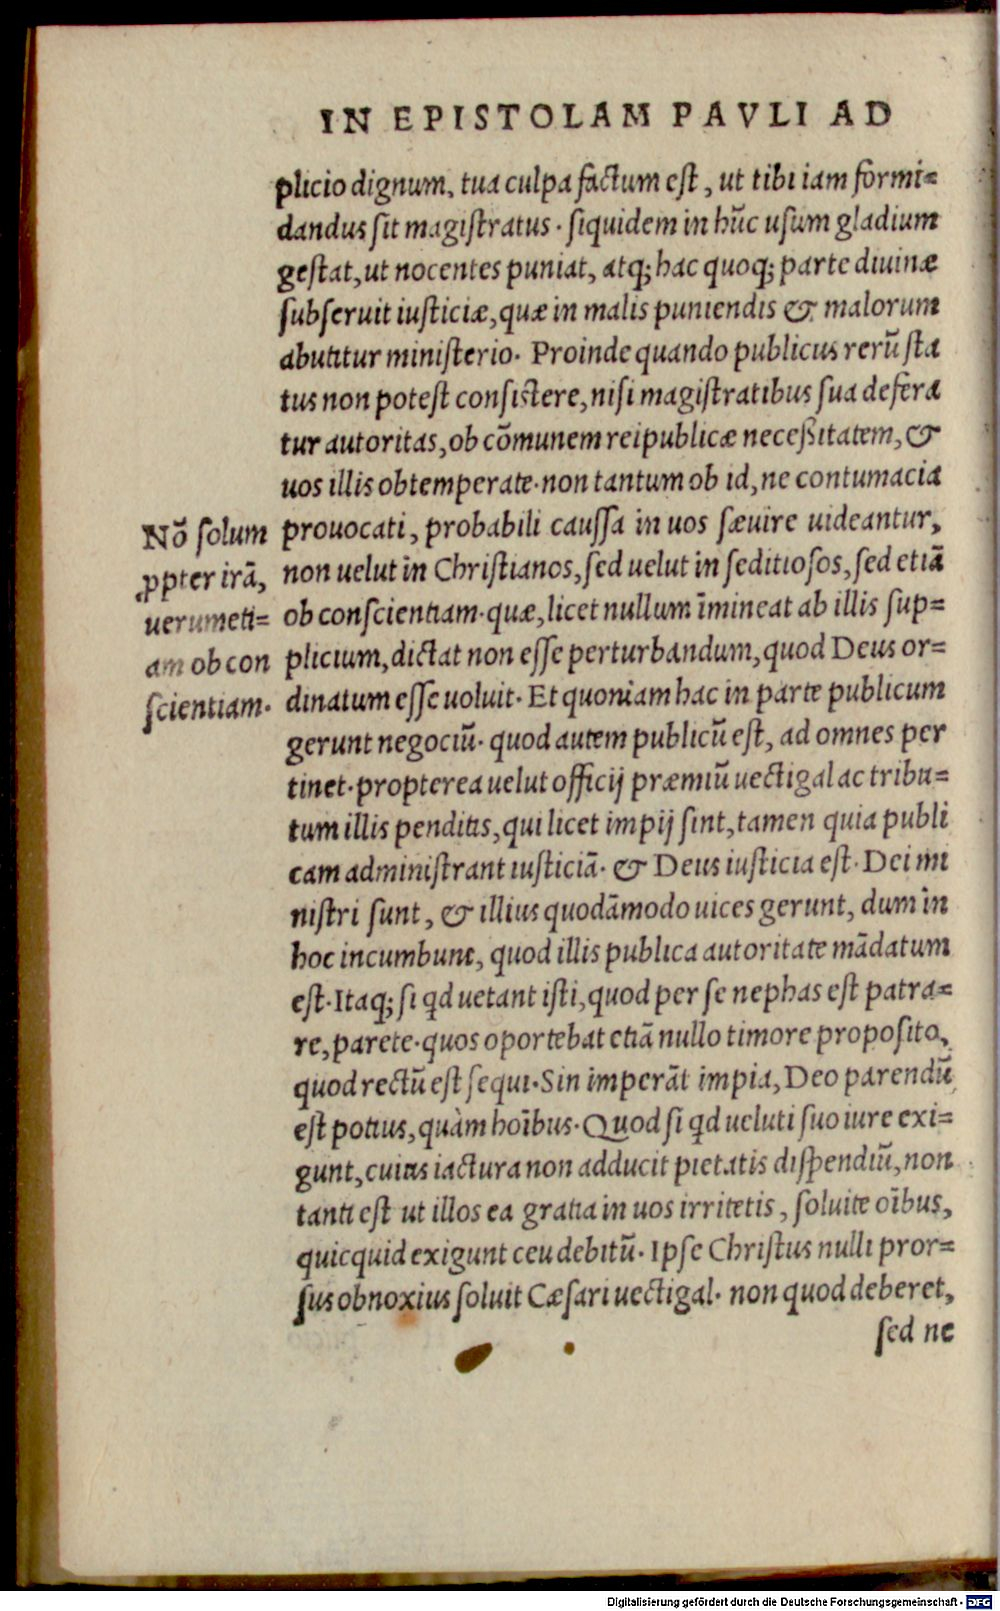 IN EPISTOLAM PAVLI AD
plicio dignum, tua culpa factum est, ut tibi iam formi=
dandus sit magistratus. siquidem in hūc usum gladium
gestat, ut nocentes puniat, atq; hac quoq; parte diuinæ
subseruit iusticiæ, quæ in malis puniendis & malorum
abutitur ministerio. Proinde quando publicus rerū sta
tus non potest consistere, nisi magistratibus sua defera
tur autoritas, ob cōmunem reipublicæ neceßitatem, &
uos illis obtemperate. non tantum ob id, ne contumacia
prouocati, probabili caussa in uos sæuire uideantur,
non uelut in Christianos, sed uelut in seditiosos, sed etiā
ob conscientiam. quæ, licet nullum īmineat ab illis sup=
plicium, dictat non esse perturbandum, quod Deus or=
dinatum esse uoluit. Et quoniam hac in parte publicum
gerunt negociū. quod autem publicū est, ad omnes per
tinet. propterea uelut officij præmiū uectigal ac tribu=
tum illis penditis, qui licet impij sint, tamen quia publi
cam administrant iusticiā. & Deus iusticia est. Dei mi
nistri sunt, & illius quodāmodo uices gerunt, dum in
hoc incumbunt, quod illis publica autoritate mādatum
est. Itaq; si qd uetant isti, quod per se nephas est patra=
re, parete. quos oportebat etiā nullo timore proposito,
quod rectū est sequi. Sin imperāt impia, Deo parendū
est potius, quàm hoībus. Quod si qd ueluti suo iure exi=
gunt, cuius iactura non adducit pietatis dispendiū, non
tanti est ut illos ea gratia in uos irritetis, soluite oībus,
quicquid exigunt ceu debitū. Ipse Christus nulli pror=
sus obnoxius soluit Cæsari uectigal. non quod deberet,
sed ne
Nō solum
ꝓpter irā,
uerumeti=
am ob con
scientiam.
Digitalisierung gefördert durch die Deutsche Forschungsgemeinschaft - DFG